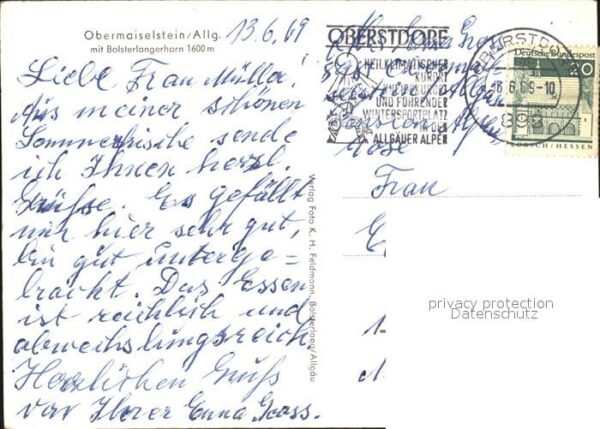 Obermaiselstein/Allg.
mit Bolsterlangerhorn 1600 m
13.6.69
Liebe Frau Müller!
Aus meiner schönen
Sommerfrische sende
ich Ihnen herzl.
Grüsse. Es gefällt
mir hier sehr gut,
bin gut unterge=
bracht. Das Essen
ist reichlich und
abwechslungsreich.
Herzlichen Gruß
von Ihrer Enna
Verlag Foto K. H. Feldmann, Bolsterlang/Allgäu
OBERSTDORF
HEILKLIMATISCHER
KURORT
KNEIPPKURORT
UND FÜHRENDER
WINTERSPORTPLATZ
IN DEN
ALLGÄUER ALPEN
OBERSTDORF
6.69-10
898
Deutsche Bundespost
20
LORSCH/HESSEN
Frau
privacy protection
Datenschutz